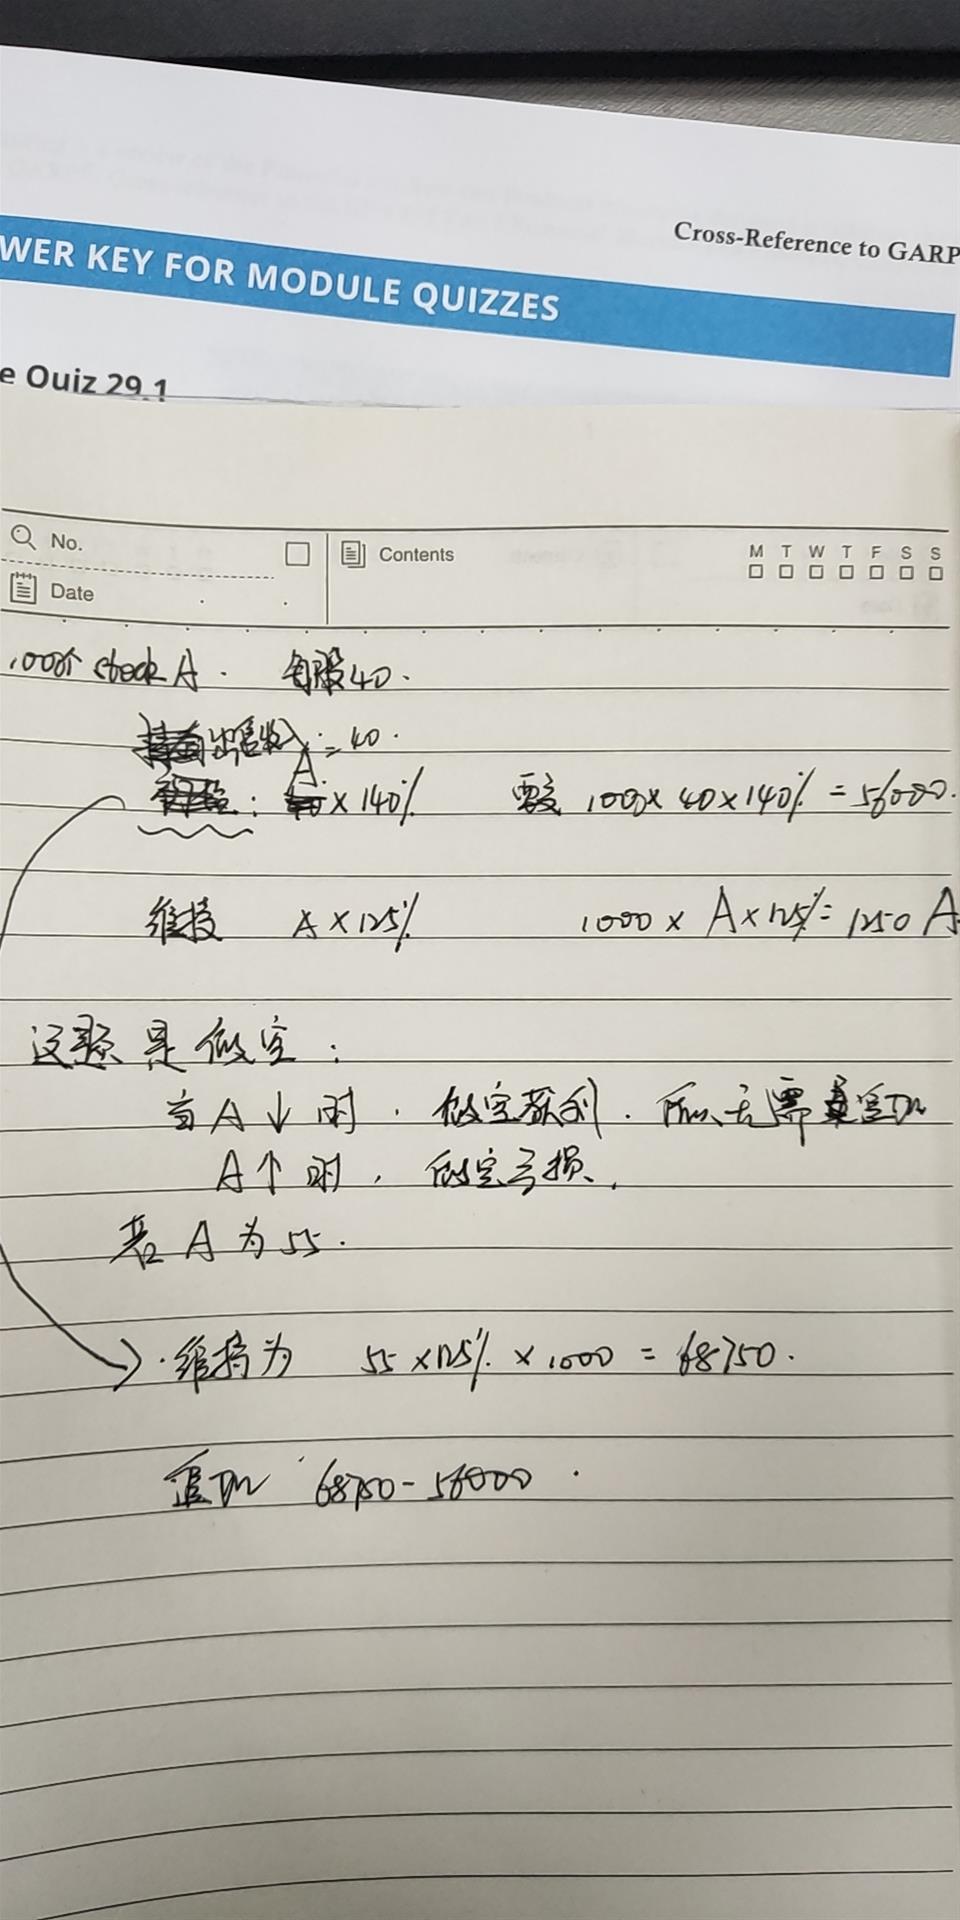 Cross-Reference to GARP
WER KEY FOR MODULE QUIZZES
e Quiz 29.1
No.
Contents
M T W T F S S
Date
1000个 stock A. 每股40.
出售收入 = 40.
A × 140% 要交 1000 × 40 × 140% = 56000.
维持 A × 125% 1000 × A × 125% = 1250 A.
这题是做空:
当 A ↓ 时. 做空获利. 所以无需追加
A 个 时, 做空亏损.
若 A 为 55.
维持为 55 × 125% × 1000 = 68750.
追加 68750 - 56000.